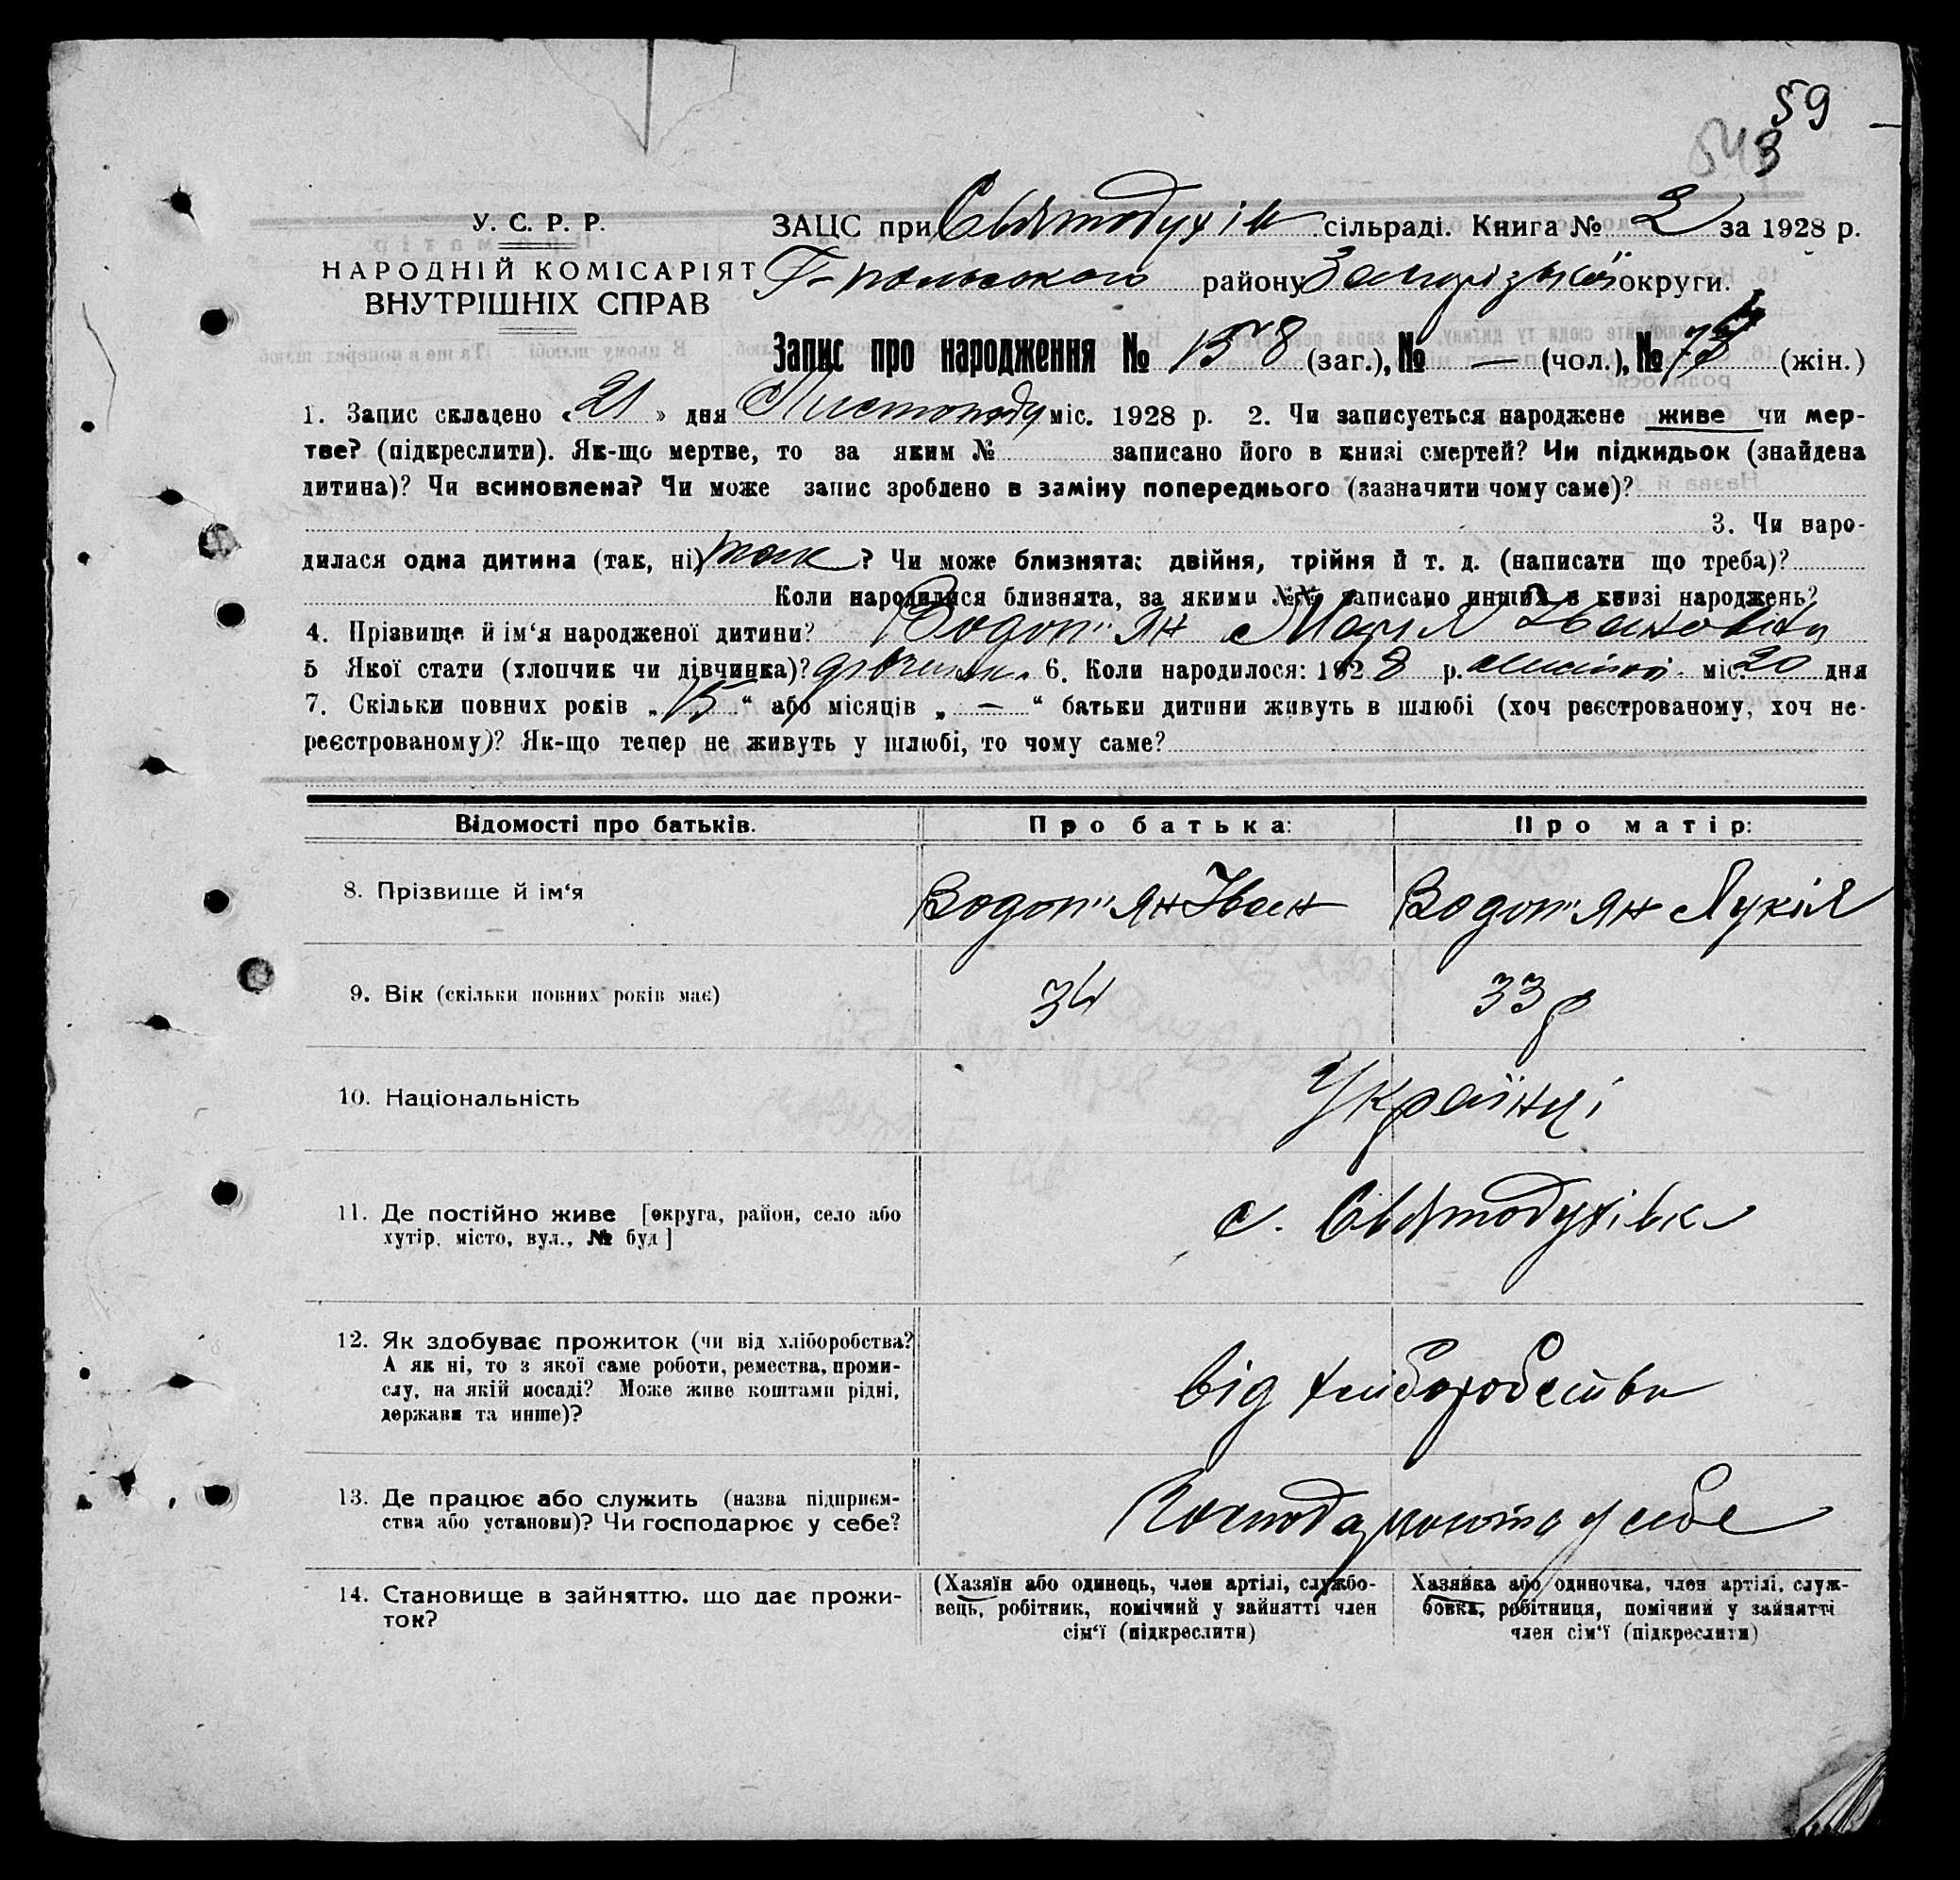 59
543
У. С. Р. Р.
НАРОДНІЙ КОМІСАРІЯТ
ВНУТРІШНІХ СПРАВ
ЗАЦС при Святодухів сільраді. Книга № 2 за 1928 р.
Г-польського району Запорізької округи.
Запис про народження № 158 (заг.), № — (чол.), № (жін.)
1. Запис складено «21» дня Листопаду міс. 1928 р. 2. Чи записується народжене живе чи мер-
тве? (підкреслити). Як-що мертве, то за яким № записано його в книзі смертей? Чи підкидьок (знайдена
дитина)? Чи всиновлена? Чи може запис зроблено в заміну попереднього (зазначити чому саме)?
3. Чи наро-
дилася одна дитина (так, ні) так? Чи може близнята: двійня, трійня й т. д. (написати що треба)?
Коли народилися близнята, за якими №№ записано инших в книзі народжень?
4. Прізвище й ім‘я народженої дитини? Водоп"ян Марія Івановна
5 Якої стати (хлопчик чи дівчинка)? дівчинка. 6. Коли народилося: 1928 р. міс. 20 дня
7. Скільки повних років „15“ або місяців „—“ батьки дитини живуть в шлюбі (хоч реєстрованому, хоч не-
реєстрованому)? Як-що тепер не живуть у шлюбі, то чому саме?
Відомості про батьків. Про батька: Про матір:
8. Прізвище й ім‘я Водоп"ян Іван Водоп"ян Лукія
9. Вік (скільки повних років має) 34 33 р
10. Національність Українці
11. Де постійно живе [округа, район, село або
хутір, місто, вул., № буд] с. Святодухівка
12. Як здобуває прожиток (чи від хліборобства?
А як ні, то з якої саме роботи, ремества, проми-
слу, на якій посаді? Може живе коштами рідні,
держави та инше)? від хліборобства
13. Де працює або служить (назва підприєм-
ства або установи)? Чи господарює у себе? у себе
14. Становище в зайняттю, що дає прожи-
ток?
(Хазяїн або одинець, член артілі, службо-
вець, робітник, помічний у зайнятті член
сім‘ї (підкреслити)
Хазяйка або одиночка, член артілі, служ-
бовка, робітниця, помічний у зайнятті
член сім‘ї (підкреслити)